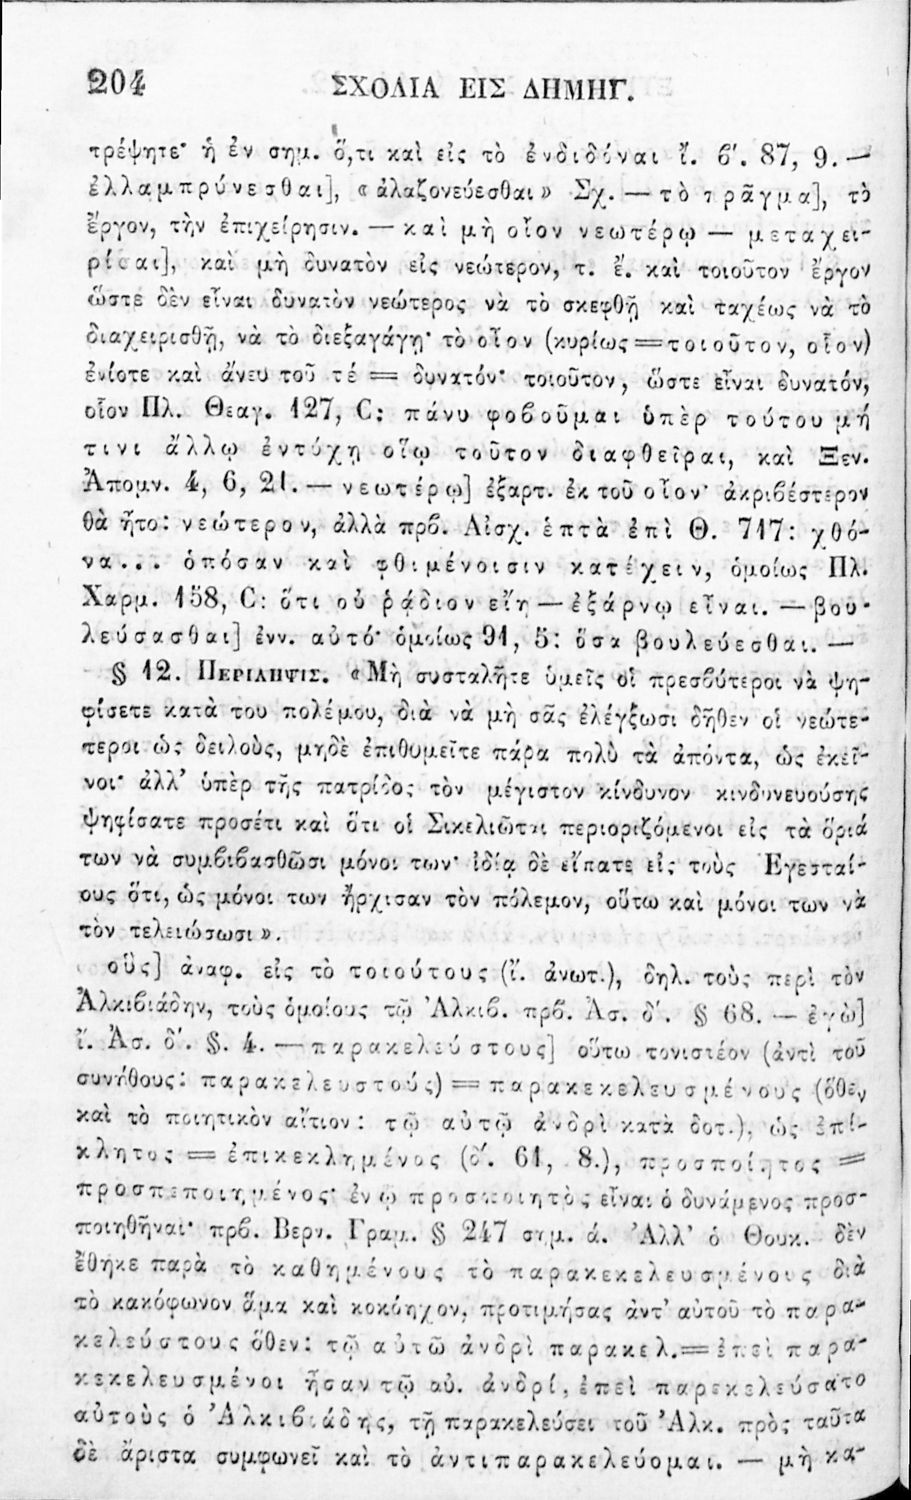 204 ΣΧΟΛΙΑ ΕΙΣ ΔΗΜΗΓ.
τρέψητε· ἡ ἐν σημ. ὅ,τι καὶ εἰς τὸ ἐνδιδόναι ἴ. ϐ′. 87, 9. —
ἐλλαμπρύνεσθαι], « ἀλαζονεύεσθαι » Σχ. — τὸ πρᾶγμα], τὸ
ἔργον, τὴν ἐπιχείρησιν. — καὶ μὴ οἷον νεωτέρῳ — μεταχει-
ρίσαι], καὶ μὴ δυνατὸν εἰς νεώτερον, τ. ἔ. καὶ τοιοῦτον ἔργον
ὥστε δὲν εἶναι δυνατὸν νεώτερος νὰ τὸ σκεφθῇ καὶ ταχέως νὰ τὸ
διαχειρισθῇ, νὰ τὸ διεξαγάγῃ· τὸ οἷον (κυρίως = τοιοῦτον, οἷον)
ἐνίοτε καὶ ἄνευ τοῦ τέ = δυνατόν· τοιοῦτον, ὥστε εἶναι δυνατόν,
οἷον Πλ. Θεαγ. 127, C: πάνυ φοϐοῦμαι ὑπὲρ τούτου μή
τινι ἄλλῳ ἐντύχῃ οἵῳ τοῦτον διαφθεῖραι, καὶ Ξεν.
Ἀπομν. 4, 6, 21. — νεωτέρῳ] ἐξαρτ. ἐκ τοῦ οἷον· ἀκριϐέστερον
θὰ ἦτο: νεώτερον, ἀλλὰ πρϐ. Αἰσχ. ἑπτὰ ἐπὶ Θ. 717: χθό-
να... ὁπόσαν καὶ φθιμένοισιν κατέχειν, ὁμοίως Πλ.
Χαρμ. 158, C: ὅτι οὐ ῥᾴδιον εἴη — ἐξάρνῳ εἶναι. — βου-
λεύσασθαι] ἐνν. αὐτό· ὁμοίως 91, 5: ὅσα βουλεύεσθαι. —
§ 12. Περιληψις. « Μὴ συσταλῆτε ὑμεῖς οἱ πρεσϐύτεροι νὰ ψη-
φίσετε κατὰ του πολέμου, διὰ νὰ μὴ σᾶς ἐλέγξωσι δῆθεν οἱ νεώτε-
τεροι ὡς δειλοὺς, μηδὲ ἐπιθυμεῖτε πάρα πολὺ τὰ ἀπόντα, ὡς ἐκεῖ-
νοι· ἀλλ’ ὑπὲρ τῆς πατρίδος τὸν μέγιστον κίνδυνον κινδυνευούσης
ψηφίσατε προσέτι καὶ ὅτι οἱ Σικελιῶται περιοριζόμενοι εἰς τὰ ὅριά
των νὰ συμϐιϐασθῶσι μόνοι των· ἰδίᾳ δὲ εἴπατε εἰς τοὺς Ἐγεσταί-
ους ὅτι, ὡς μόνοι των ἤρχισαν τὸν πόλεμον, οὕτω καὶ μόνοι των νὰ
τὸν τελειώσωσι ».
οὓς] ἀναφ. εἰς τὸ τοιούτους (ἴ. ἀνωτ.), δηλ. τοὺς περὶ τὸν
Ἀλκιϐιάδην, τοὺς ὁμοίους τῷ Ἀλκιϐ. πρϐ. Ἀσ. δ′. § 68. — ἐγὼ]
ἴ. Ἀσ. δ′. §. 4. — παρακελεύστους] οὕτω τονιστέον (ἀντὶ τοῦ
συνήθους: παρακελευστούς) = παρακεκελευσμένους (ὅθεν
καὶ τὸ ποιητικὸν αἴτιον: τῷ αὐτῷ ἀνδρὶ κατὰ δοτ.), ὡς ἐπί-
κλητος = ἐπικεκλημένος (δ′. 61, 8.), προσποίητος =
προσπεποιημένος· ἐν ᾧ προσποιητὸς εἶναι ὁ δυνάμενος προσ-
ποιηθῆναι· πρϐ. Βερν. Γραμ. § 247 σημ. ά. Ἀλλ’ ὁ Θουκ. δὲν
ἔθηκε παρὰ τὸ καθημένους τὸ παρακεκελευσμένους διὰ
τὸ κακόφωνον ἅμα καὶ κακόηχον, προτιμήσας ἀντ’ αὐτοῦ τὸ παρα-
κελεύστους ὅθεν: τῷ αὐτῷ ἀνδρὶ παρακελ. = ἐπεὶ παρα-
κεκελευσμένοι ἦσαν τῷ αὐ. ἀνδρί, ἐπεὶ παρεκελεύσατο
αὐτοὺς ὁ Ἀλκιϐιάδης, τῇ παρακελεύσει τοῦ Ἀλκ. πρὸς ταῦτα
δὲ ἄριστα συμφωνεῖ καὶ τὸ ἀντιπαρακελεύομαι. — μὴ κα-